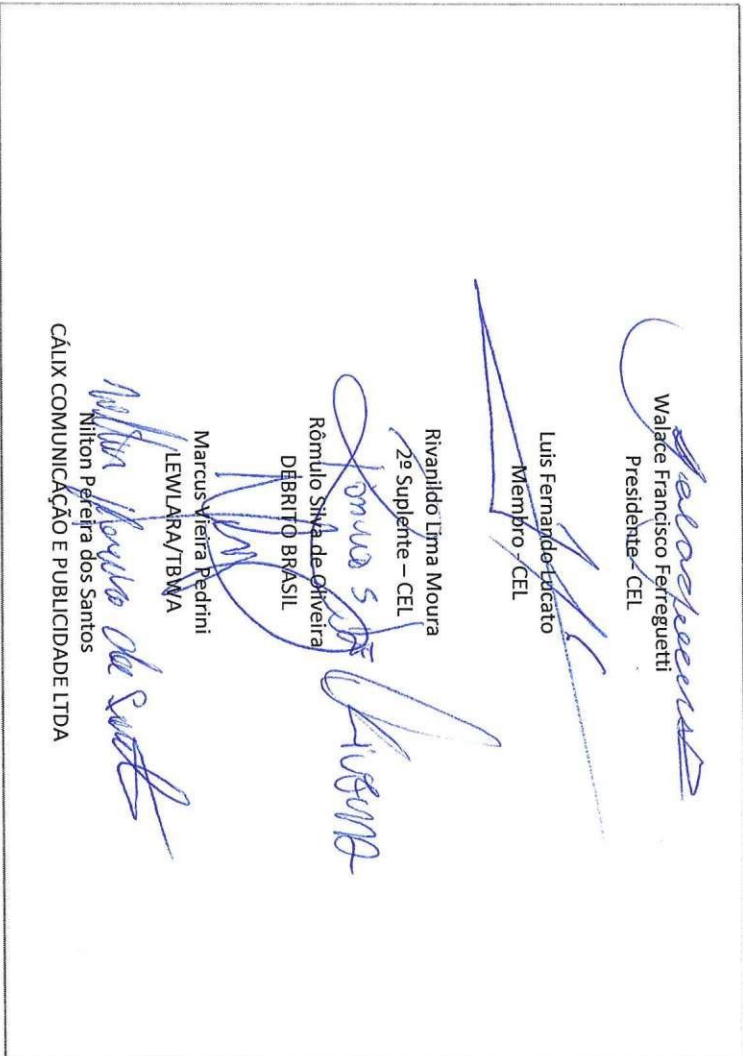 Walace Francisco Ferreguetti
Presidente - CEL
Luis Fernando Lucato
Membro - CEL
Rivanildo Lima Moura
2º Suplente – CEL
Rômulo Silva de Oliveira
DEBRITO BRASIL
Marcus Vieira Pedrini
LEWLARA/TBWA
Nilton Pereira dos Santos
CÁLIX COMUNICAÇÃO E PUBLICIDADE LTDA